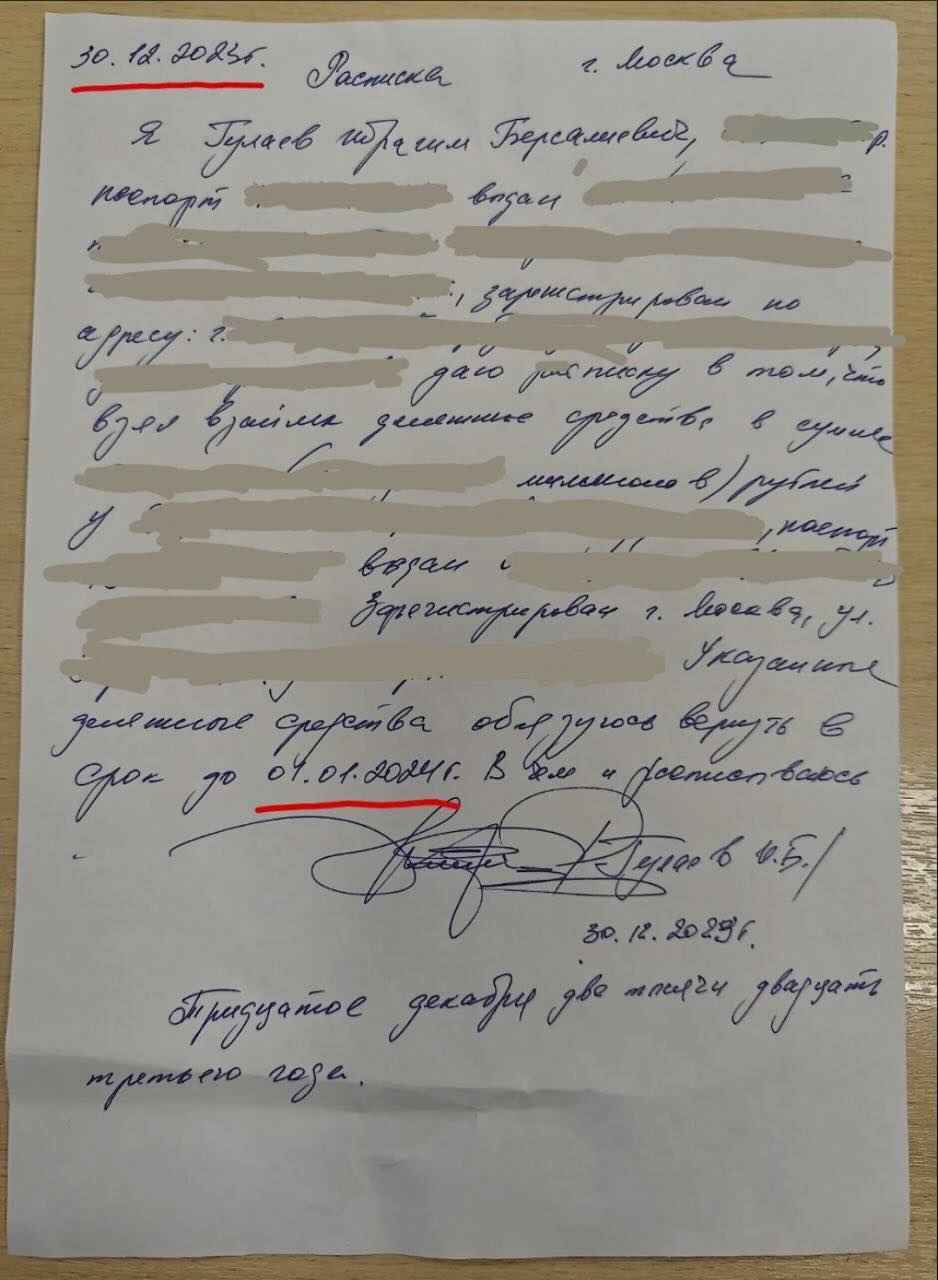 30.12.2023г. Расписка г. Москва
Я Гулаев Ибрагим Берсалиевич, р.
паспорт выдан
, зарегистрирован по
адресу: г.
даю расписку в том, что
взял взаймы денежные средства в сумме
миллионов) рублей
у , паспорт
выдан
зарегистрирован г. Москва, ул.
Указанные
денежные средства обязуюсь вернуть в
срок до 01.01.2024г. В чем и расписываюсь
/Гулаев И.Б./
30.12.2023г.
Тридцатое декабря две тысячи двадцать
третьего года.